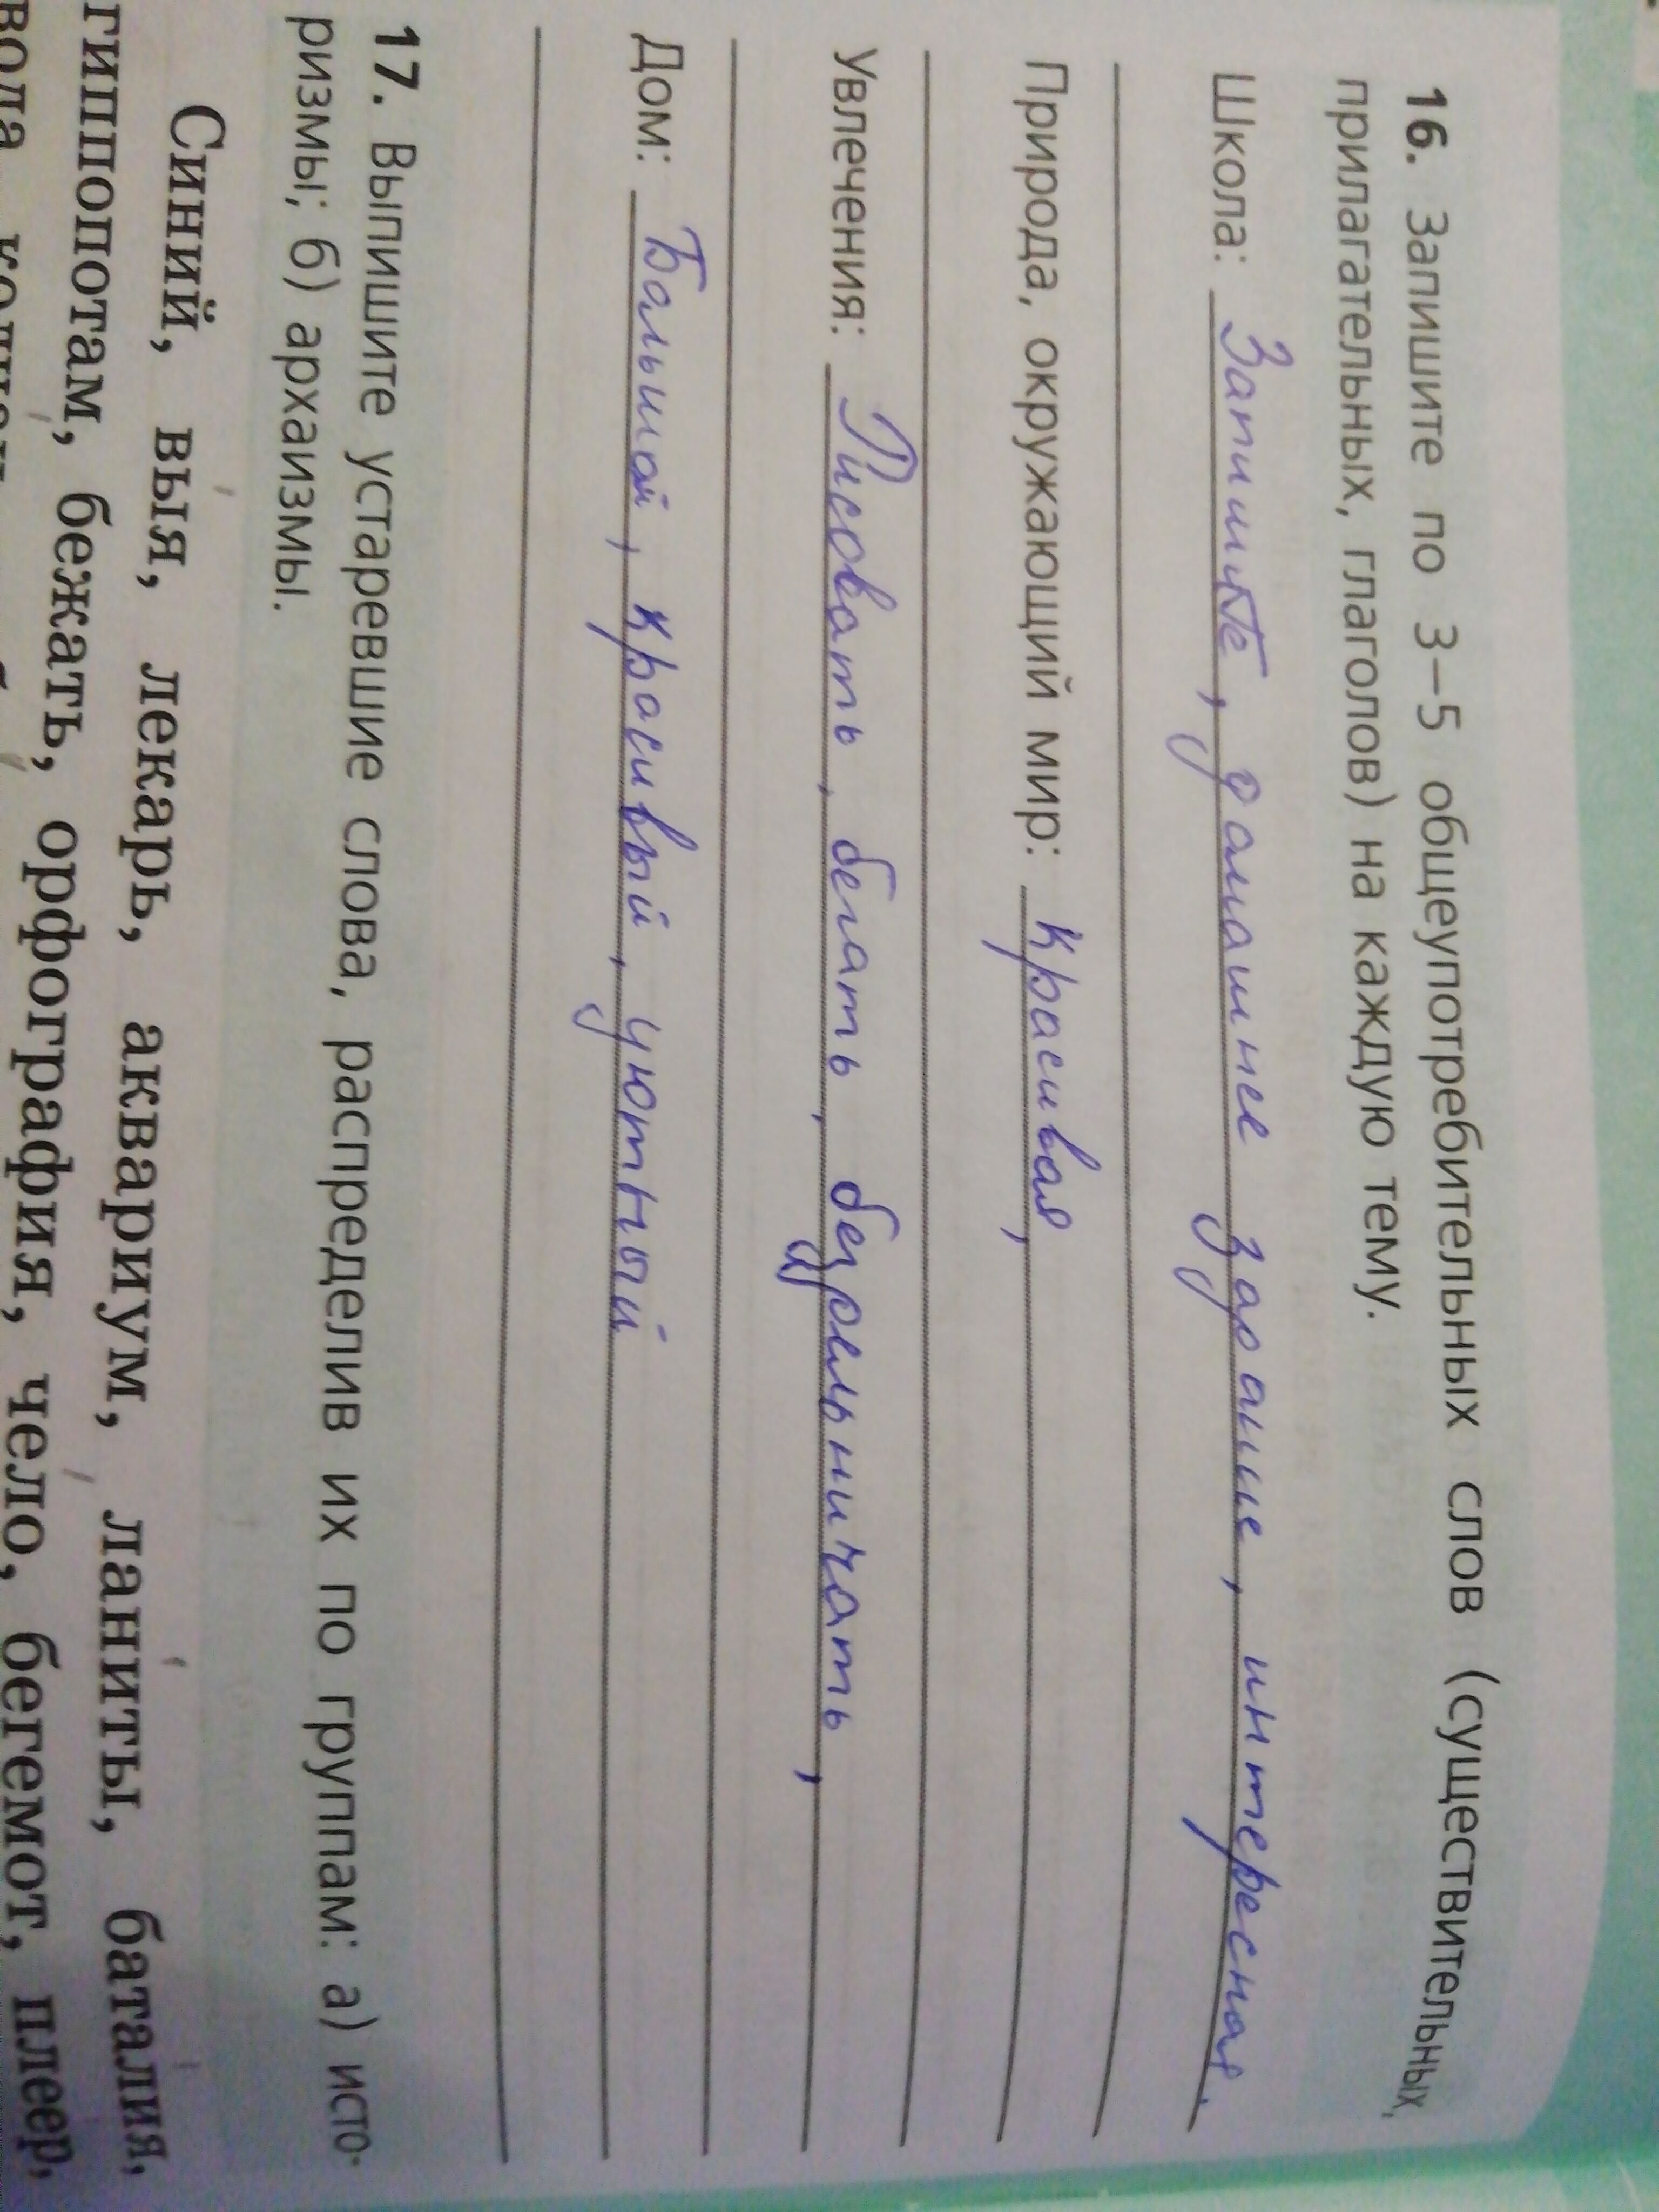 16. Запишите по 3–5 общеупотребительных слов (существительных,
прилагательных, глаголов) на каждую тему.
Школа: Запишите, домашнее задание, интересная.
Природа, окружающий мир: красивая,
Увлечения: Рисовать, бегать, бездельничать,
Дом: Бальшой, красивый, уютный
17. Выпишите устаревшие слова, распределив их по группам: а) исто-
ризмы; б) архаизмы.
Синий, выя, лекарь, аквариум, ланиты, баталия,
гиппопотам, бежать, орфография, чело, бегемот, плеер,